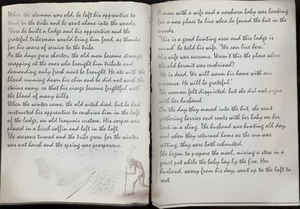 When the shaman was old, he left his apprentice to
tend to the tribe and he went alone into the woods.
There he built a lodge and his apprentice and the
grateful tribesmen would bring him food, as thanks
for his years of service to the tribe.
As the days grew shorter, the old man became strange,
snapping at the ones who brought him tribute and
demanding only food meat be brought. He ate with the
blood running down his chin and he did not wash the
stains away, so that his visage became frightful with
the blood of many kills.
When the winter came, the old witch died, but he had
instructed his apprentice to enshrine him in the loft
of the lodge, an old Iroquois custom. His corpse was
placed in a birch coffin and left in the loft.
The seasons turned and the tribe grew, for the winter
was not harsh and the spring was prosperous.
A man with a wife and a newborn baby was looking
for a new place to live when he found the hut in the
woods.
"This is a good hunting area and this lodge is
sound" he told his wife. "We can live here."
His wife was worried. "Wasn't this the place where
the old hermit was enshrined?"
"He is dead. We will warm his home with our
presence. He will be grateful."
The woman felt disquieted, but she did not argue
with her husband.
On the day they moved into the hut, she went
gathering berries and roots with her baby on her
back in a sling. The husband was hunting all day,
and when they returned home as the sun was
setting, they were both exhausted.
She began to prepare the meal, mixing a stew in a
great pot while the baby lay by the fire. Her
husband, weary from his day, went up to the loft to
rest.